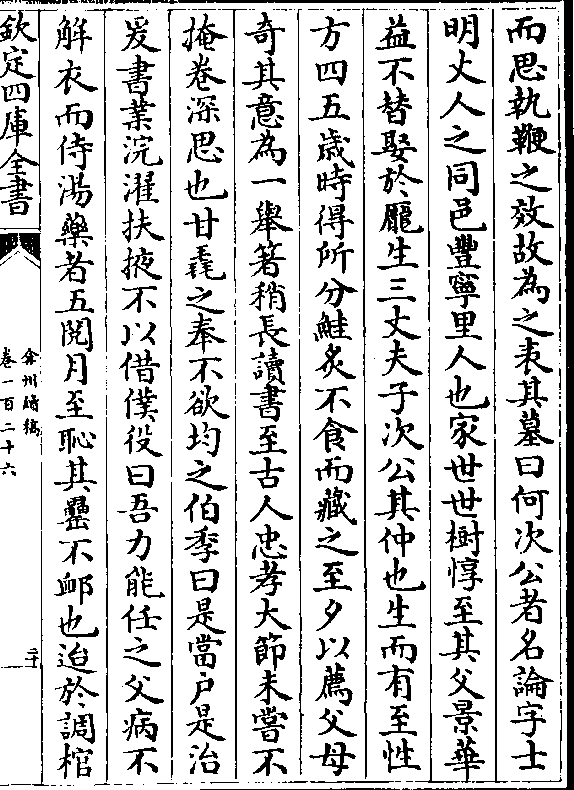 而思執鞭之效故為之表其墓曰何次公者名論字士
明丈人之同邑豐寧里人也家世世樹惇至其父景華
益不替娶於龎生三丈夫子次公其仲也生而有至性
方四五歳時得所分鮭炙不食而藏之至夕以薦父母
奇其意為一舉箸稍長讀書至古人忠孝大節未嘗不
掩卷深思也甘毳之奉不欲均之伯季曰是當户是治
爰書業浣濯扶掖不以借僕役曰吾力能任之父病不
解衣而侍湯藥者五閱月至恥其罍不䘏也迨於調棺
欽定四庫全書
弇州續稿
卷一百二十六
二十